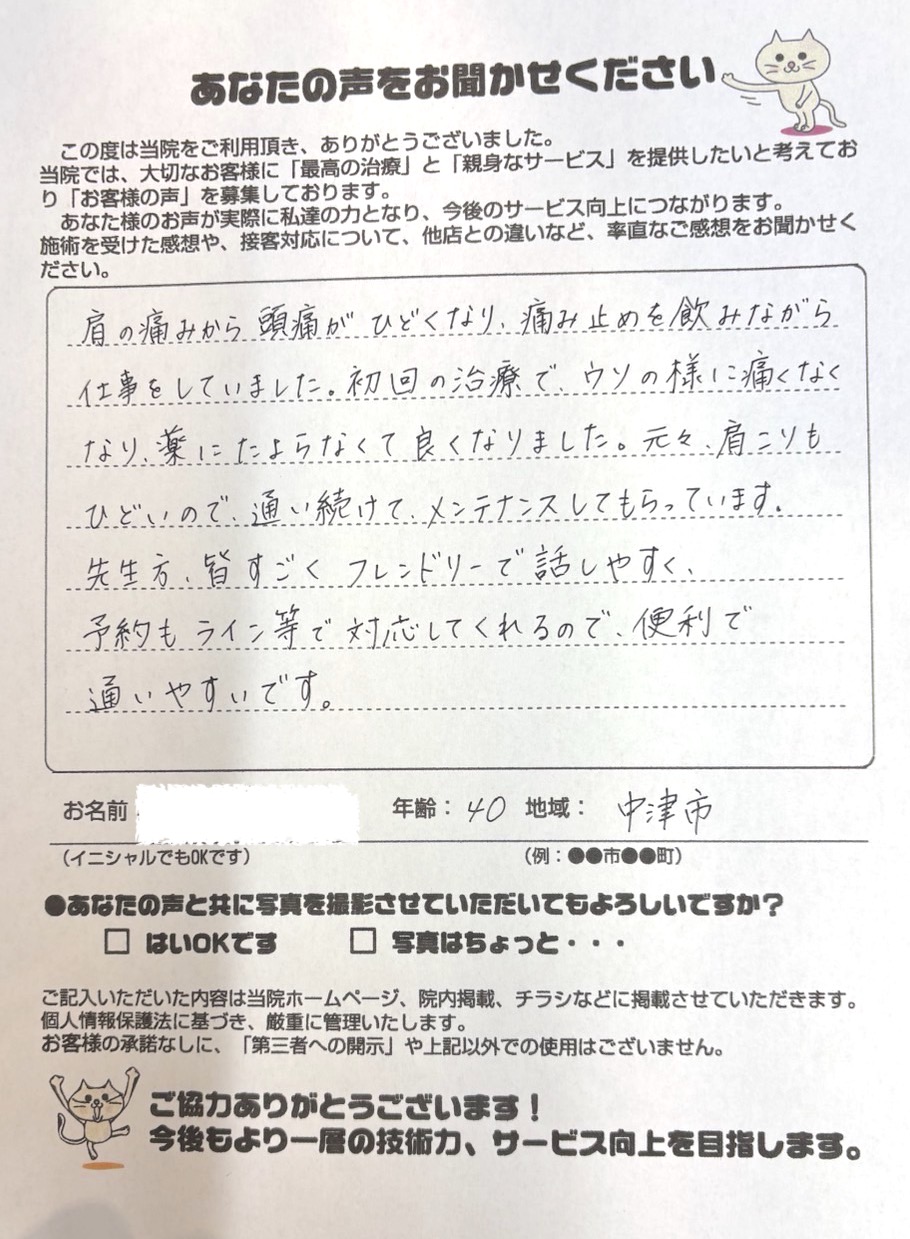 あなたの声をお聞かせください
この度は当院をご利用頂き、ありがとうございました。
当院では、大切なお客様に「最高の治療」と「親身なサービス」を提供したいと考えてお
り「お客様の声」を募集しております。
あなた様のお声が実際に私達の力となり、今後のサービス向上につながります。
施術を受けた感想や、接客対応について、他店との違いなど、率直なご感想をお聞かせく
ださい。
肩の痛みから頭痛がひどくなり、痛み止めを飲みながら
仕事をしていました。初回の治療で、ウソの様に痛くなく
なり、薬にたよらなくて良くなりました。元々、肩こりも
ひどいので、通い続けて、メンテナンスしてもらっています。
先生方、皆すごくフレンドリーで話しやすく、
予約もライン等で対応してくれるので、便利で
通いやすいです。
お名前 年齢：40 地域：中津市
（イニシャルでもOKです） （例：●●市●●町）
●あなたの声と共に写真を撮影させていただいてもよろしいですか？
□ はいOKです □ 写真はちょっと・・・
ご記入いただいた内容は当院ホームページ、院内掲載、チラシなどに掲載させていただきます。
個人情報保護法に基づき、厳重に管理いたします。
お客様の承諾なしに、「第三者への開示」や上記以外での使用はございません。
ご協力ありがとうございます！
今後もより一層の技術力、サービス向上を目指します。